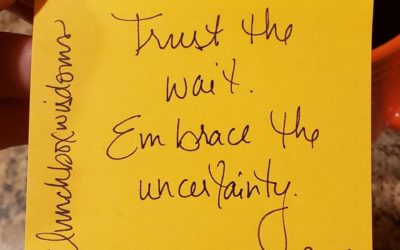 lunchboxwisdoms
Trust the
wait.
Embrace the
uncertainty.